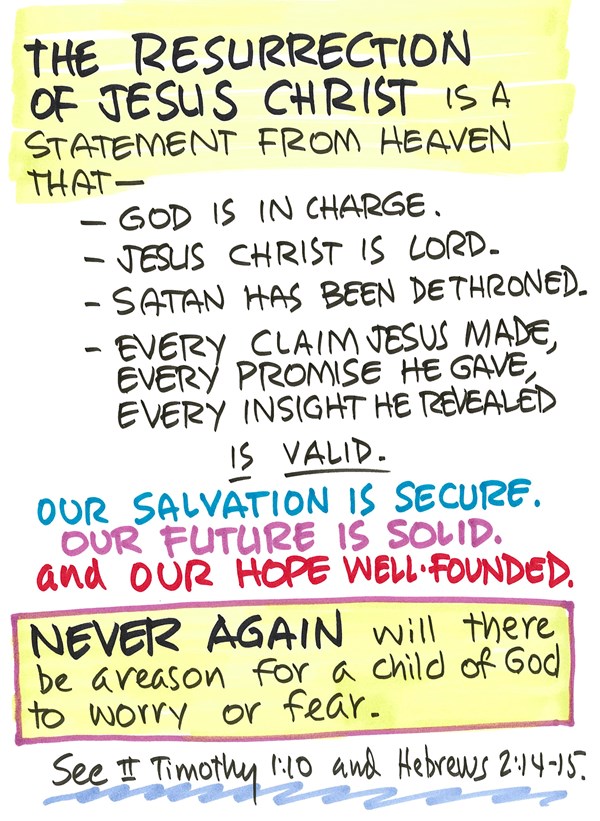 THE RESURRECTION
OF JESUS CHRIST IS A
STATEMENT FROM HEAVEN
THAT—
- GOD IS IN CHARGE.
- JESUS CHRIST IS LORD.
- SATAN HAS BEEN DETHRONED.
- EVERY CLAIM JESUS MADE,
EVERY PROMISE HE GAVE,
EVERY INSIGHT HE REVEALED
IS VALID.
OUR SALVATION IS SECURE.
OUR FUTURE IS SOLID.
and OUR HOPE WELL-FOUNDED.
NEVER AGAIN will there
be a reason for a child of God
to worry or fear.
See II Timothy 1:10 and Hebrews 2:14-15.